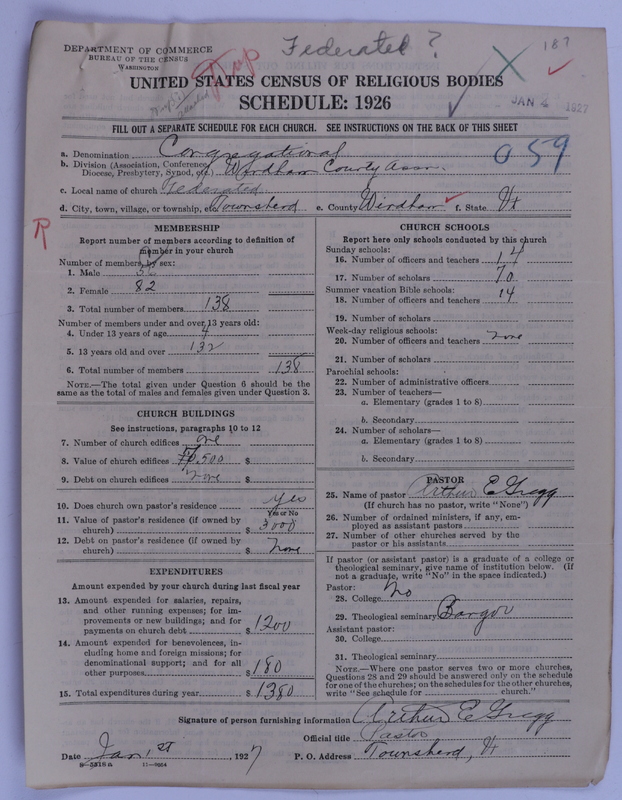 DEPARTMENT OF COMMERCE
BUREAU OF THE CENSUS
WASHINGTON
Federated ?
187
UNITED STATES CENSUS OF RELIGIOUS BODIES
SCHEDULE: 1926
JAN 4 1927
FILL OUT A SEPARATE SCHEDULE FOR EACH CHURCH. SEE INSTRUCTIONS ON THE BACK OF THIS SHEET
059
a. Denomination Congregational
b. Division (Association, Conference, Diocese, Presbytery, Synod, etc.) Windham County Assn.
c. Local name of church Federated
d. City, town, village, or township, etc. Townshend e. County Windham f. State Vt
R
MEMBERSHIP
Report number of members according to definition of member in your church
Number of members, by sex:
1. Male 56
2. Female 82
3. Total number of members 138
Number of members under and over 13 years old:
4. Under 13 years of age
5. 13 years old and over 132
6. Total number of members 138
NOTE.—The total given under Question 6 should be the
same as the total of males and females given under Question 3.
CHURCH BUILDINGS
See instructions, paragraphs 10 to 12
7. Number of church edifices one
8. Value of church edifices $
9. Debt on church edifices none $
10. Does church own pastor's residence yes
Yes or No
11. Value of pastor's residence (if owned by
church) $ 3000
12. Debt on pastor's residence (if owned by
church) $ none
EXPENDITURES
Amount expended by your church during last fiscal year
13. Amount expended for salaries, repairs,
and other running expenses; for im-
provements or new buildings; and for
payments on church debt $ 1200
14. Amount expended for benevolences, in-
cluding home and foreign missions; for
denominational support; and for all
other purposes $ 180
15. Total expenditures during year $ 1380
CHURCH SCHOOLS
Report here only schools conducted by this church
Sunday schools:
16. Number of officers and teachers 14
17. Number of scholars 70
Summer vacation Bible schools:
18. Number of officers and teachers 14
19. Number of scholars
Week-day religious schools:
20. Number of officers and teachers none
21. Number of scholars
Parochial schools:
22. Number of administrative officers
23. Number of teachers—
a. Elementary (grades 1 to 8)
b. Secondary
24. Number of scholars—
a. Elementary (grades 1 to 8)
b. Secondary
PASTOR
25. Name of pastor Arthur E Gregg
(If church has no pastor, write "None")
26. Number of ordained ministers, if any, em-
ployed as assistant pastors
27. Number of other churches served by the
pastor or his assistants
If pastor (or assistant pastor) is a graduate of a college or
theological seminary, give name of institution below. (If
not a graduate, write "No" in the space indicated.)
Pastor:
28. College No
29. Theological seminary Bangor
Assistant pastor:
30. College
31. Theological seminary
NOTE.—Where one pastor serves two or more churches,
Questions 28 and 29 should be answered only on the schedule
for one of the churches; on the schedules for the other churches,
write "See schedule for church."
Signature of person furnishing information Arthur E Gregg
Official title Pastor
Date Jan 1st 1927 P. O. Address Townshend, Vt
8—5518a 11—8664